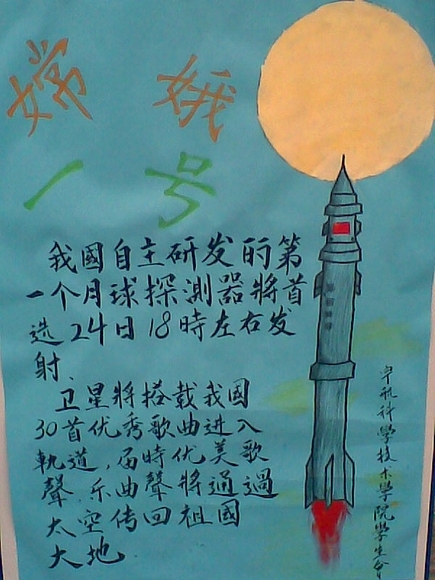 嫦娥
一号
我國自主研发的第
一个月球探測器將首
选24日18時左右发
射.
卫星將搭载我国
30首优秀歌曲进入
軌道,届時优美歌
聲、乐曲聲將通過
太空传回祖國
大地.
宇航科學技术學院學生會